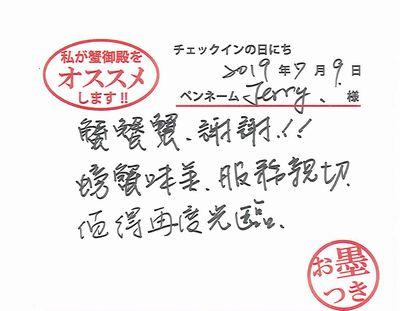 私が蟹御殿を
オススメ
します!!
チェックインの日にち
2019年7月9日
ペンネーム Jerry. 様
蟹蟹蟹、謝謝!!
螃蟹味美、服務親切
值得再度光臨、
お墨
つき